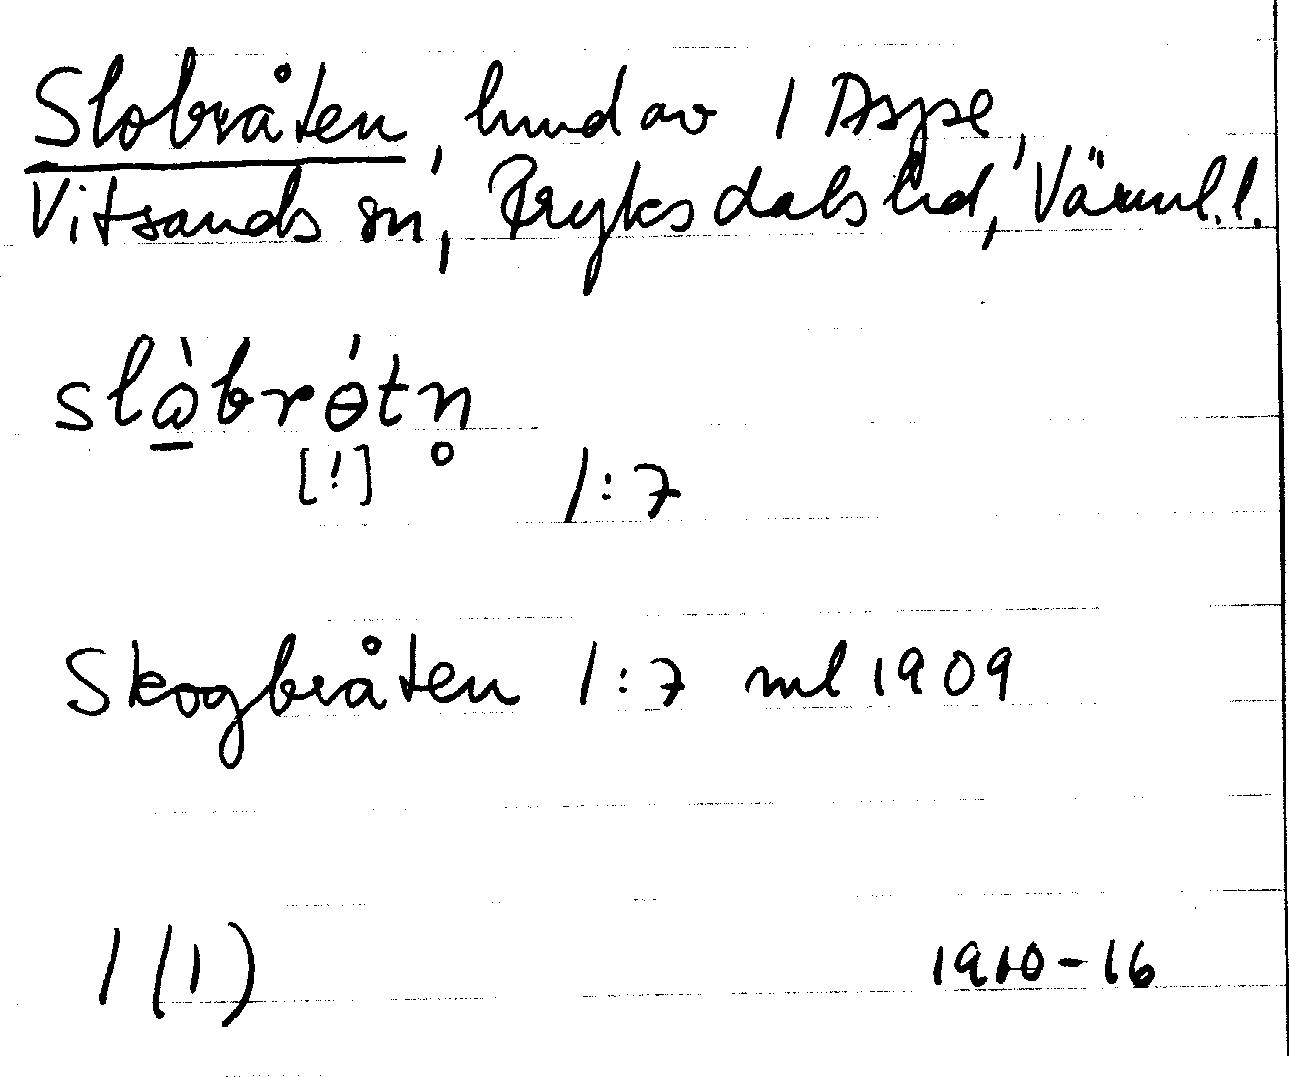 Slobråten, hmd av 1 Aspe,
Vitsands sn, Fryksdals hd, Värml. l.
slὰ̱brɵ́tn̥
[!] 1:7
Skogbråten 1:7 ml 1909
1 (1) 1910-16